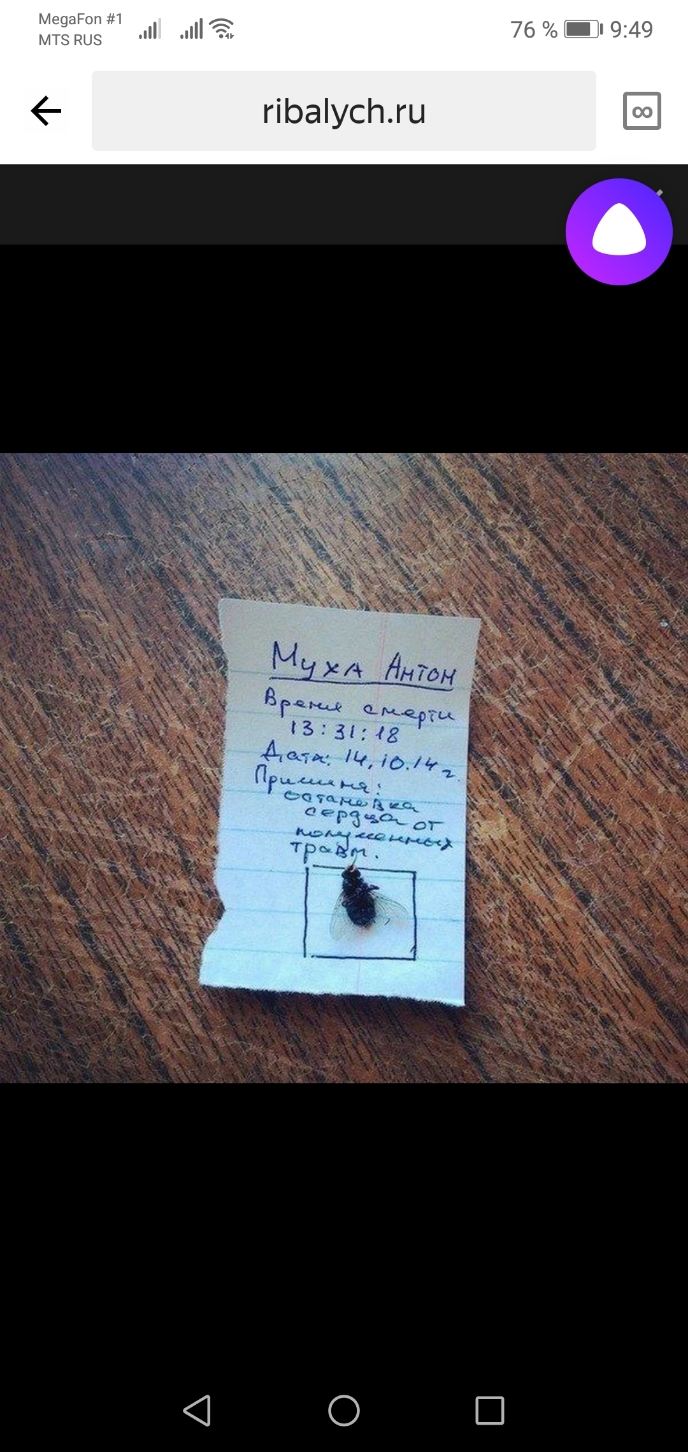 MegaFon #1
MTS RUS
76 % 9:49
ribalych.ru
Муха Антон
Время смерти
13:31:18
Дата: 14.10.14 г.
Причина:
остановка
сердца от
полученных
травм.